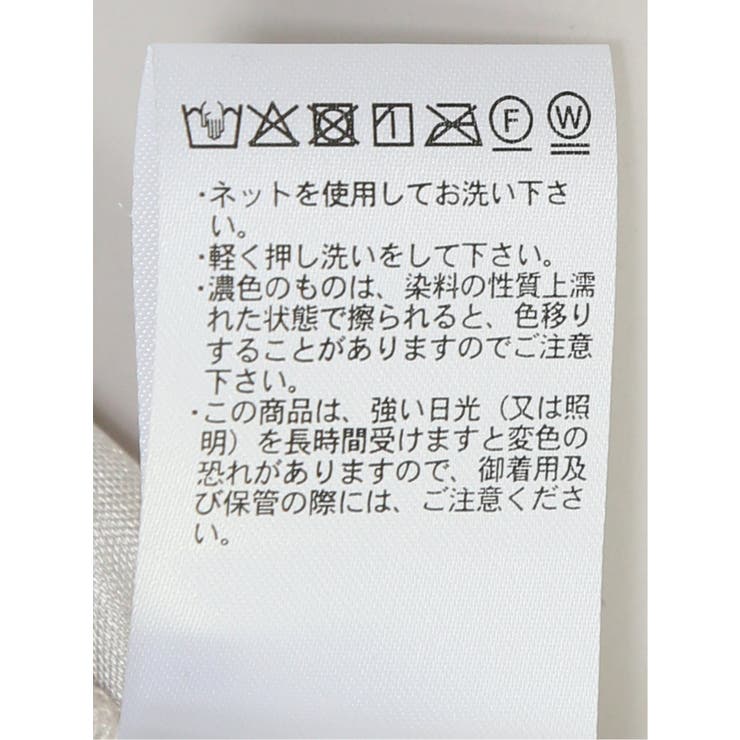 F W
・ネットを使用してお洗い下さ
い。
・軽く押し洗いをして下さい。
・濃色のものは、染料の性質上濡
れた状態で擦られると、色移り
することがありますのでご注意
下さい。
・この商品は、強い日光（又は照
明）を長時間受けますと変色の
恐れがありますので、御着用及
び保管の際には、ご注意くださ
い。